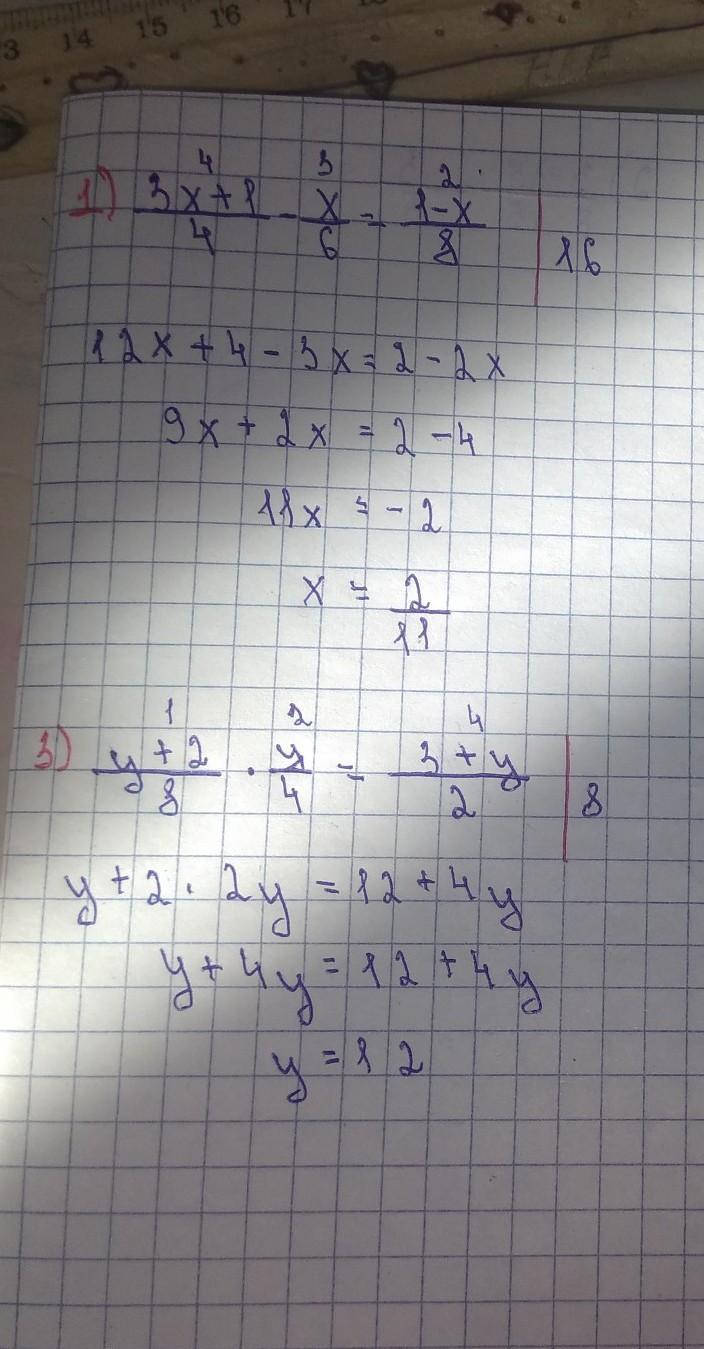 13 14 15 16 17
4 3 2
1) (3x+1)/4 - x/6 = (1-x)/8 | 16
12x + 4 - 3x = 2 - 2x
9x + 2x = 2 - 4
11x = - 2
x = 2/11
1 2 4
3) (y+2)/8 · y/4 = (3+y)/2 | 8
y + 2 · 2y = 12 + 4y
y + 4y = 12 + 4y
y = 12